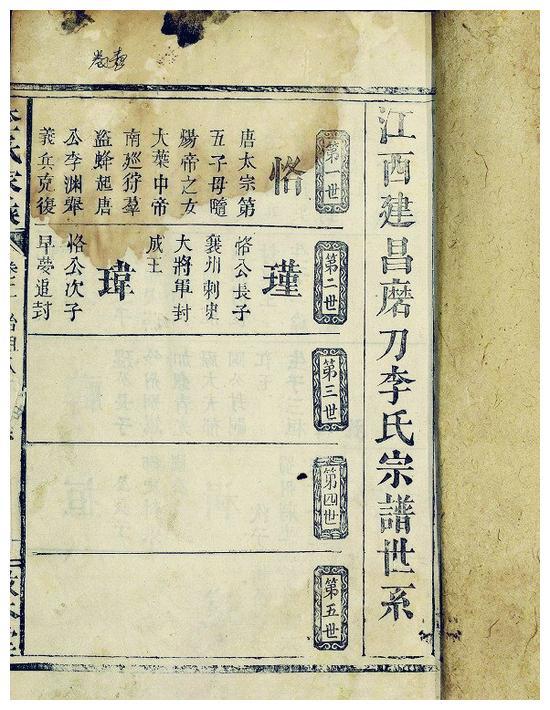 江西建昌磨刀李氏宗譜世系
第一世
恪
唐太宗第
五子母隨
煬帝之女
大葉中帝
南廵狩羣
盜蜂起唐
公李淵舉
義兵克復
第二世
瑾
恪公長子
襄州刺史
大將軍封
成王
瑋
恪公次子
早夢追封
第三世
第四世
第五世